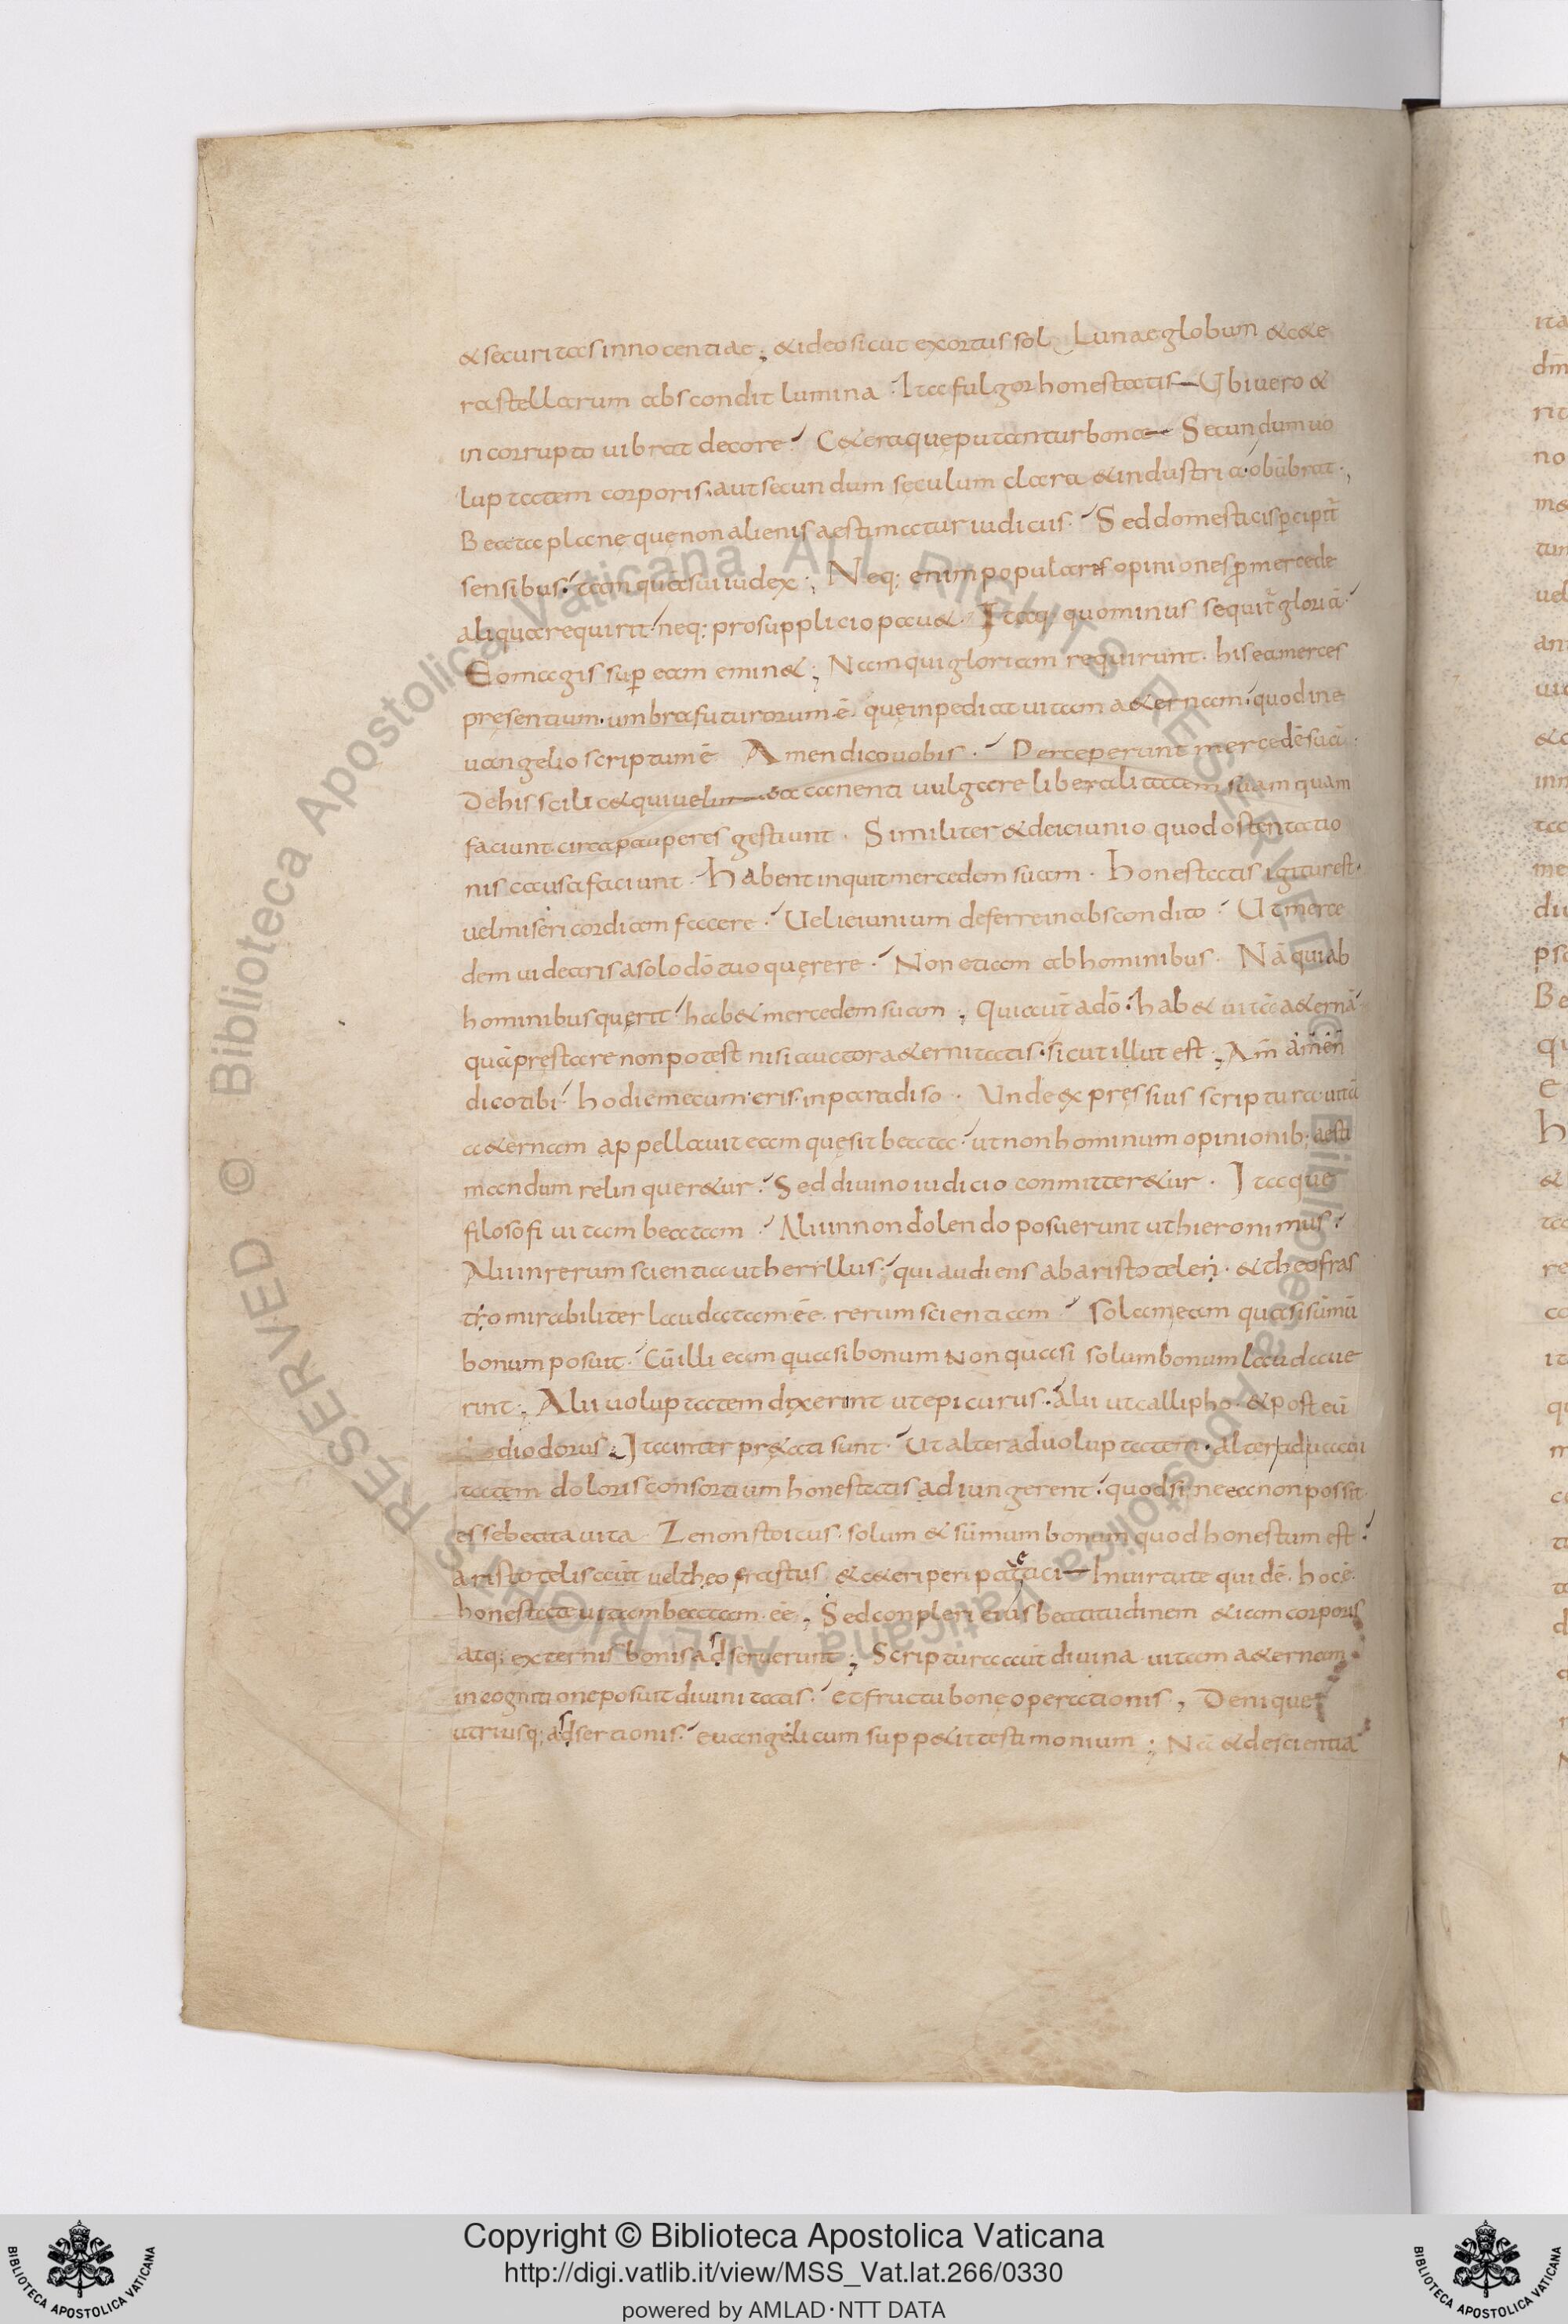 & securitas innocentiae ; & ideo sicut exortus sol Lunae globum & c&e
ra stellarum abscondit lumina . Ita fulgor honestatis Ubi vero &
in corrupto vibrat decore . C&era quę putantur bona Secundum uo
luptatem corporis . aut secundum seculum clara & industria . obūbrat .,
Beata plane quę non alienis aestimatur iudiciis . Sed domesticis p̄cipit̄
sensibus . tamquā sui iudex ; Neq; enim populares opiniones p̄ mercede
aliqua requirit . neq; pro supplicio pau& . Itaq; quominus sequit̄ gloriā .
Eo magis sup̄ eam emin& ; Nam qui gloriam requirunt . his ea merces
pręsentium . umbra futurorum ē . quę inpediat uitam a&ernam . quod in e
uangelio scriptum ē Amen dico uobis . Perceperunt mercedē suā .
De his scilic& qui uelut tuba canenti uulgare liberalitatem suam quam
faciunt circa pauperes gestiunt . Similiter & de ieiunio quod ostentatio
nis causa faciunt . Habent inquit mercedem suam . honestatis igitur est .
uel misericordiam facere . Uel ieiunium deferre in abscondito . Ut merce
dem uidearis a solo dō tuo quęrere . Non etiam ab hominibus . Nā qui ab
hominibus quęrit hab& mercedem suam ; qui aut̄ a dō . hab& uitā a&ernā .
quā pręstare non potest nisi auctor a&ernitatis . sicut illut est ; Am̄ am̄en̄
dico tibi hodie mecum eris . in paradiso . Unde expressius scriptura uitā
a&ernam appellauit eam quę sit beata . ut non hominum opinionib; aesti
mandum relinquer&ur . Sed diuino iudicio conmitter&ur . Itaque
filosofi uitam beatam . Alii in non dolendo posuerunt ut hieronimus .
Alii in rerum scientia ut herillus . qui audiens ab aristoteleri . & theofras
tro mirabiliter laudatam ēē . rerum scientiam . solam eam quasi sūmū
bonum posuit . Cū illi eam quasi bonum Non quasi solum bonum laudaue
rint ; Alii uoluptatem dixerint ut epicurus . alii ut callipho . & post eū
diodorus ; Ita inter pr&ati sunt . Ut alter ad uoluptatem . alter ad uacui
tatem doloris consortium honestatis adiungerent . quod sine ea non possit
esse beata uita . Zenon stoicus . solum & sūmum bonum quod honestum est .
aristotelis aut̄ uel theofrastus & c&eri peripatetici In uirtute quidē . hoc ē
honestate uitam beatam ēē ; Sed conpleri eius beatitudinem &iam corporis
atq; externis bonis adseruerunt ; Scriptura aut̄ diuina uitam a&ernam
in cognitione posuit diuinitatis . et fructu bonę operationis , Denique
utriusq; adsertionis . euangelicum supp&it testimonium ; Nā & de scientia
Copyright © Biblioteca Apostolica Vaticana
http://digi.vatlib.it/view/MSS_Vat.lat.266/0330
powered by AMLAD·NTT DATA
BIBLIOTECA APOSTOLICA VATICANA
BIBLIOTECA APOSTOLICA VATICANA